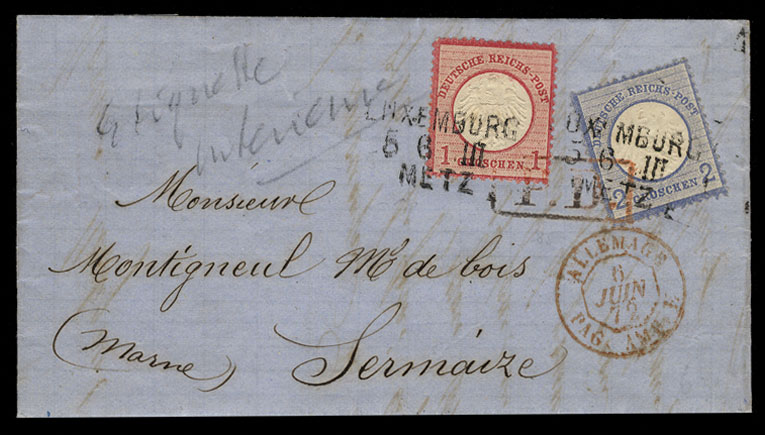 étiquette
intérieure
DEUTSCHE REICHS-POST
1 GROSCHEN 1
DEUTSCHE REICHS-POST
2 GROSCHEN 2
LUXEMBURG
5 6 III
METZ
UXEMBURG
5 6 III
METZ
P.D.
Monsieur
Montigneul Md de bois
(Marne) Sermaize
ALLEMAGE
6
JUIN
72
PAG. AMB. E